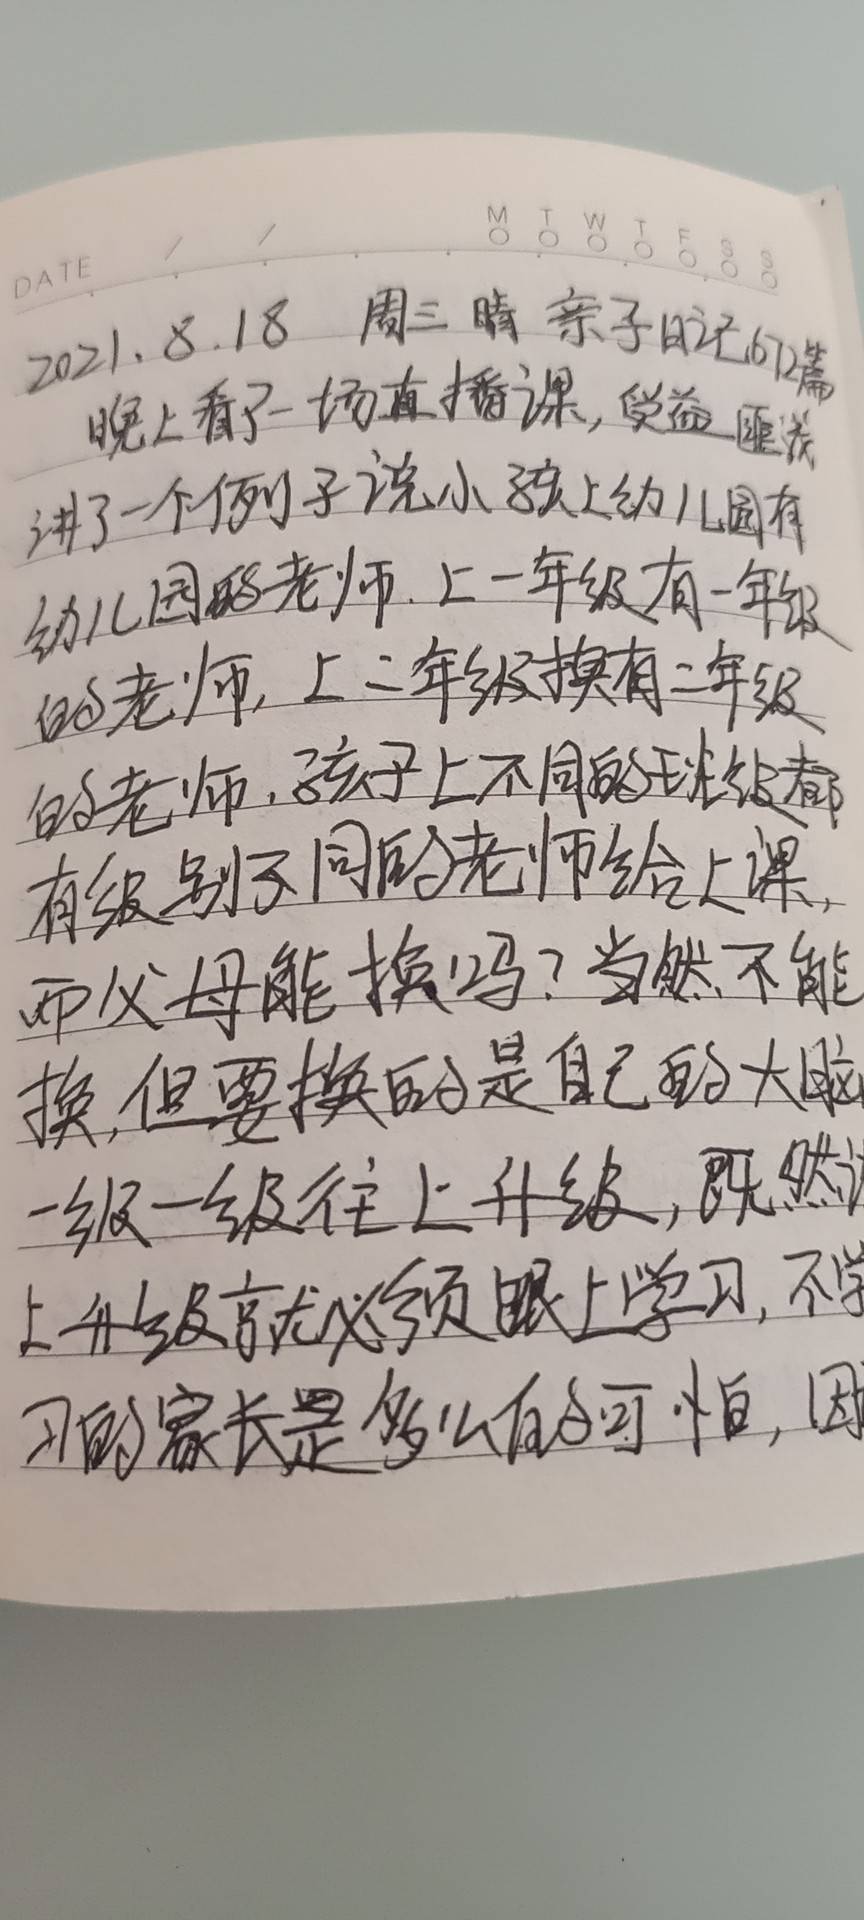 DATE / / M T W T F S S
2021.8.18 周三 晴 亲子日记672篇
晚上看了一场直播课,受益匪浅
讲了一个例子说小孩上幼儿园有
幼儿园的老师.上一年级有一年级
的老师,上二年级换有二年级
的老师.孩子上不同的班级都
有级别不同的老师给上课,
而父母能换吗?当然不能
换,但要换的是自己的大脑
一级一级往上升级,既然
上升级就必须跟上学习,不学
习的家长是多么的可怕,因